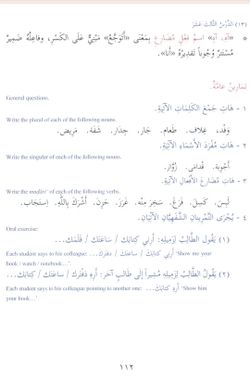 (١٣) الدَّرْسُ الثَّالِثَ عَشَرَ
* «آهِ، آهٍ» اسمُ فِعْلٍ مُضَارِعٍ بِمَعْنَى «أَتَوَجَّعُ» مَبْنِيٌّ عَلَى الْكَسْرِ، وفاعِلُهُ ضَمِيرٌ
مُسْتَتِرٌ وُجُوباً تقدِيرُهُ «أَنَا».
تمارينُ عامّةٌ
General questions.
١ - هَاتِ جَمْعَ الكَلِمَاتِ الآتِيَةِ.
وَفْدٌ، غِلافٌ. طَعَامٌ. جَارٌ. جِدارٌ. شَفَةٌ. مَرِيضٌ.
Write the plural of each of the following nouns.
٢ - هَاتِ مُفْرَدَ الأَسْمَاءِ الآتِيَةِ.
أَجْوِبَةٌ. قُدَامَى. زُوَّارٌ.
Write the singular of each of the following nouns.
٣ - هَاتِ مُضَارِعَ الأَفْعَالِ الآتِيَةِ.
لَبِسَ. كَسِلَ. فَرَغَ. سَخِرَ مِنْهُ. غَرَزَ. خَوَنَ. أَشْرَكَ بِاللَّهِ. اِسْتَجَابَ.
Write the muḍāri' of each of the following verbs.
٤ - يُجْرَى التَّمْرِينانِ الشَّفَهِيَّانِ الآتِيَانِ.
Oral exercise:
(١) يَقُولُ الطَّالِبُ لِزَمِيلِهِ: أَرِنِي كِتابَكَ / سَاعَتَكَ / قَلَمَكَ...
Each student says to his colleague: أَرِنِي كِتابَكَ / سَاعَتَكَ / دفترك... 'Show me your
book / watch / notebook...'.
(٢) يَقُولُ الطَّالِبُ لِزَمِيلِهِ مُشِيراً إِلَى طَالِبٍ آخَرَ: أَرِهِ دَفْتَرَكَ / سَاعَتَكَ / كِتابَكَ...
Each student says to his colleague pointing to another one: أَرِهِ كِتابَكَ... 'Show him
your book...'
١١٢